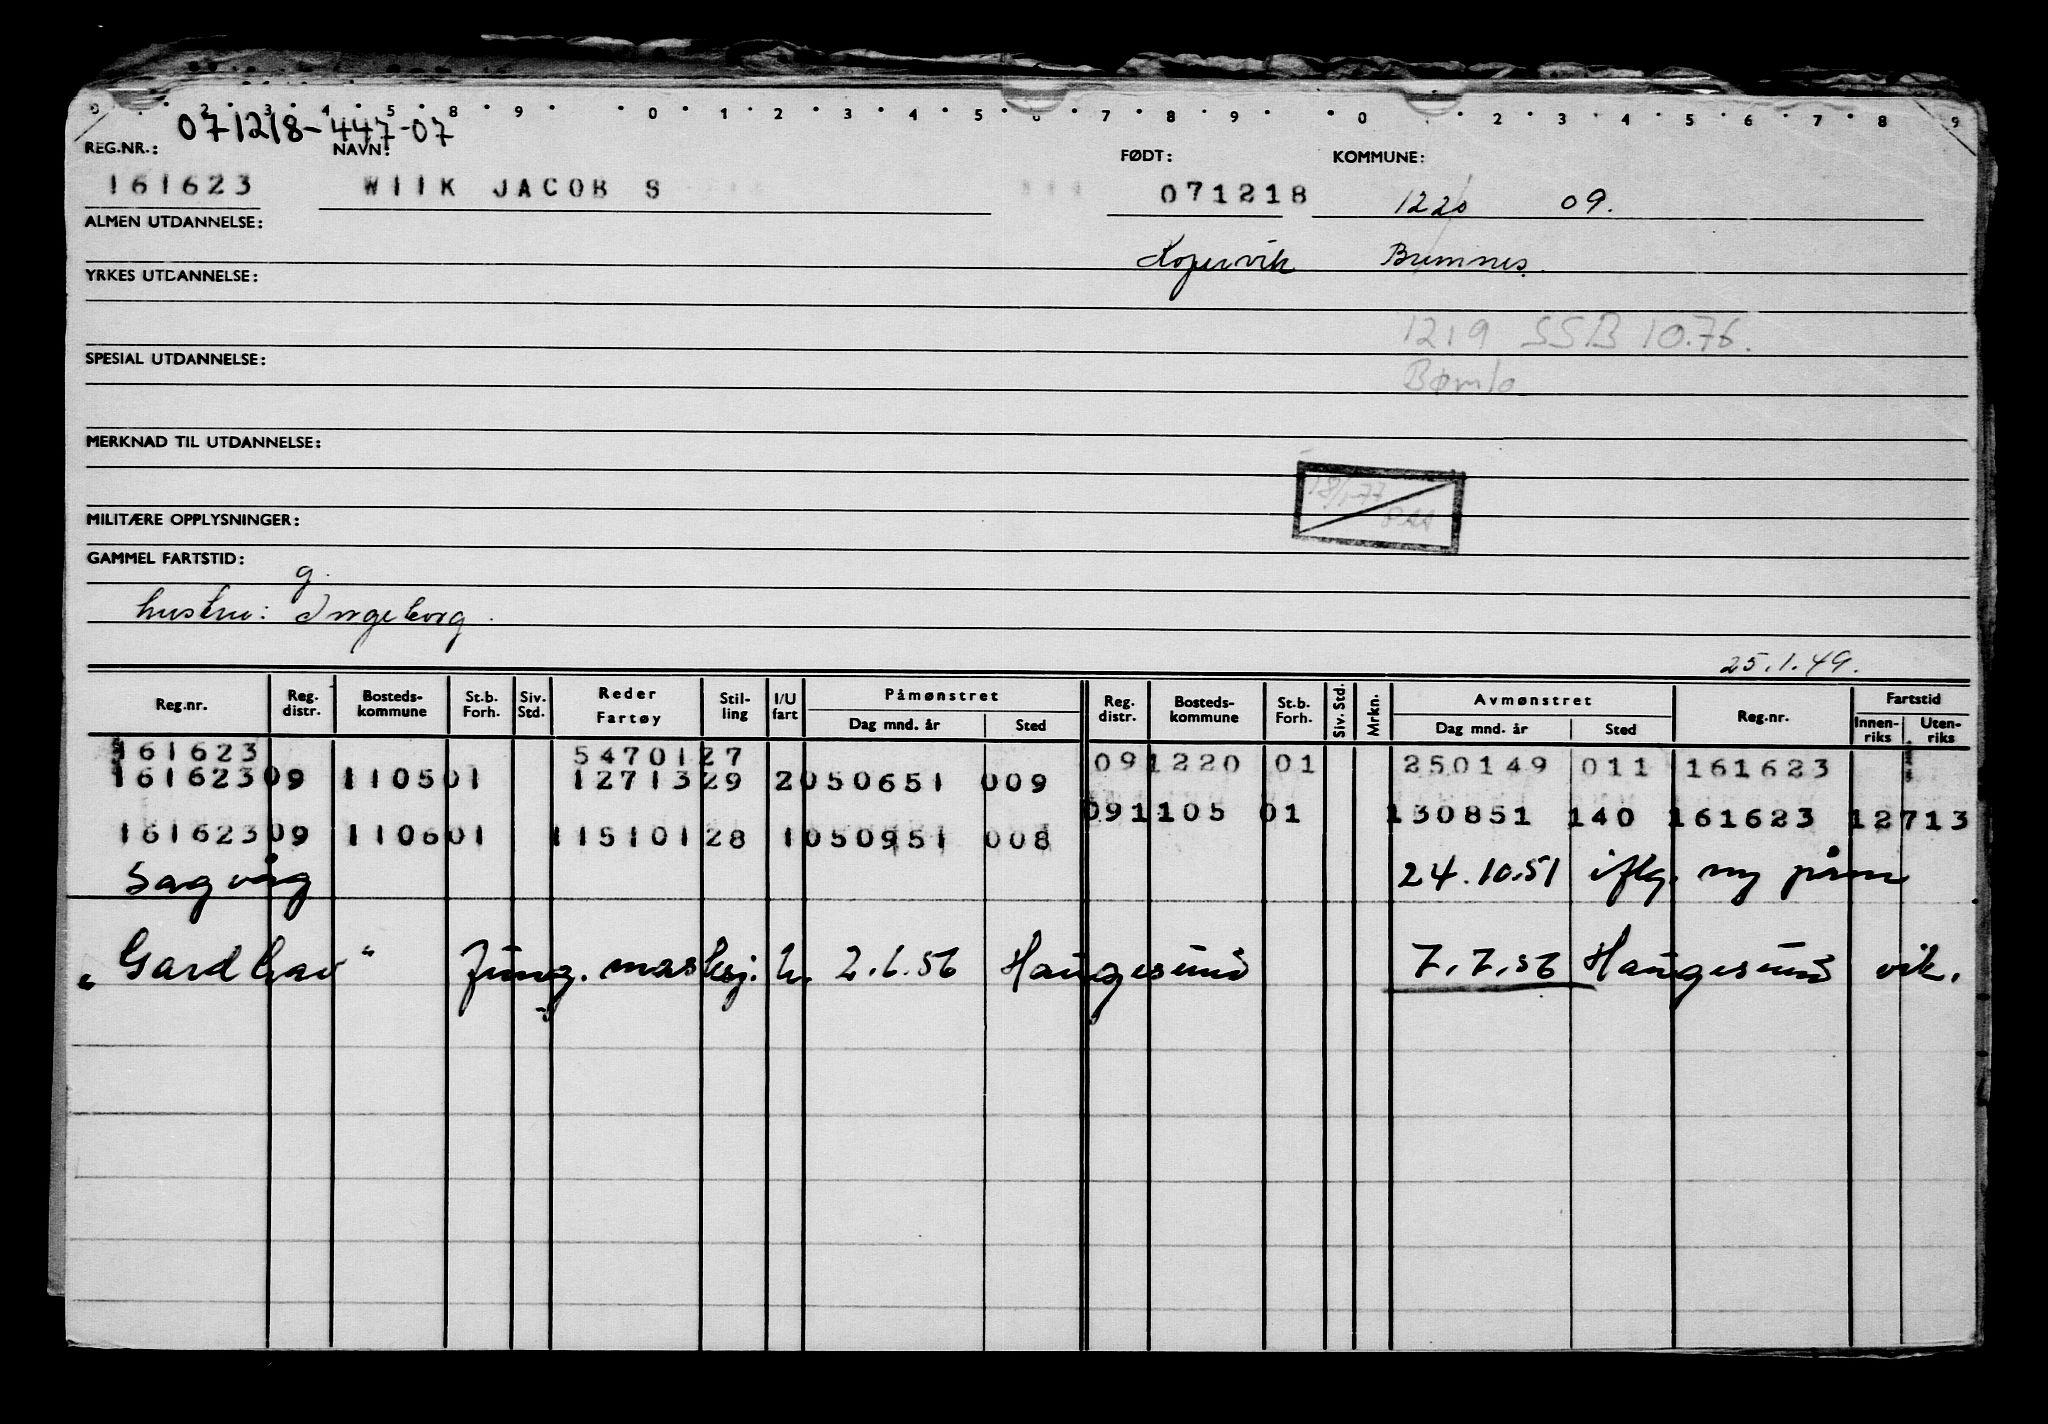 0 2 3 4 5 8 9 0 1 2 3 4 5 6 7 8 9 0 2 3 4 5 6 7 8 9
071218-447-07
REG.NR.: NAVN: FØDT: KOMMUNE:
161623 WIIK JACOB S 071218 1220 09.
ALMEN UTDANNELSE:
Kopervik Bremnes.
YRKES UTDANNELSE:
1219 SSB 10.76.
SPESIAL UTDANNELSE:
Bømlo
MERKNAD TIL UTDANNELSE:
18/1-77
MILITÆRE OPPLYSNINGER:
GAMMEL FARTSTID:
g.
hustru: Ingeborg.
25.1.49.
Reg.nr. Reg. distr. Bosteds-kommune St.b. Forh. Siv. Std. Reder Fartøy Stil-ling I/U fart Påmønstret Dag mnd. år Sted Reg. distr. Bosteds-kommune St.b. Forh. Siv. Std. Mrkn. Avmønstret Dag mnd. år Sted Reg.nr. Fartstid Innen-riks Uten-riks
161623 5470127 091220 01 250149 011 161623
16162309 110501 1271329 2050651 009
091105 01 130851 140 161623 12713
16162309 110601 11510128 1050951 008
Sagvåg 24.10.51 iflg. ny påm
"Gardhav" Jung. maskj. U. 2.6.56 Haugesund 7.7.56 Haugesund vik.